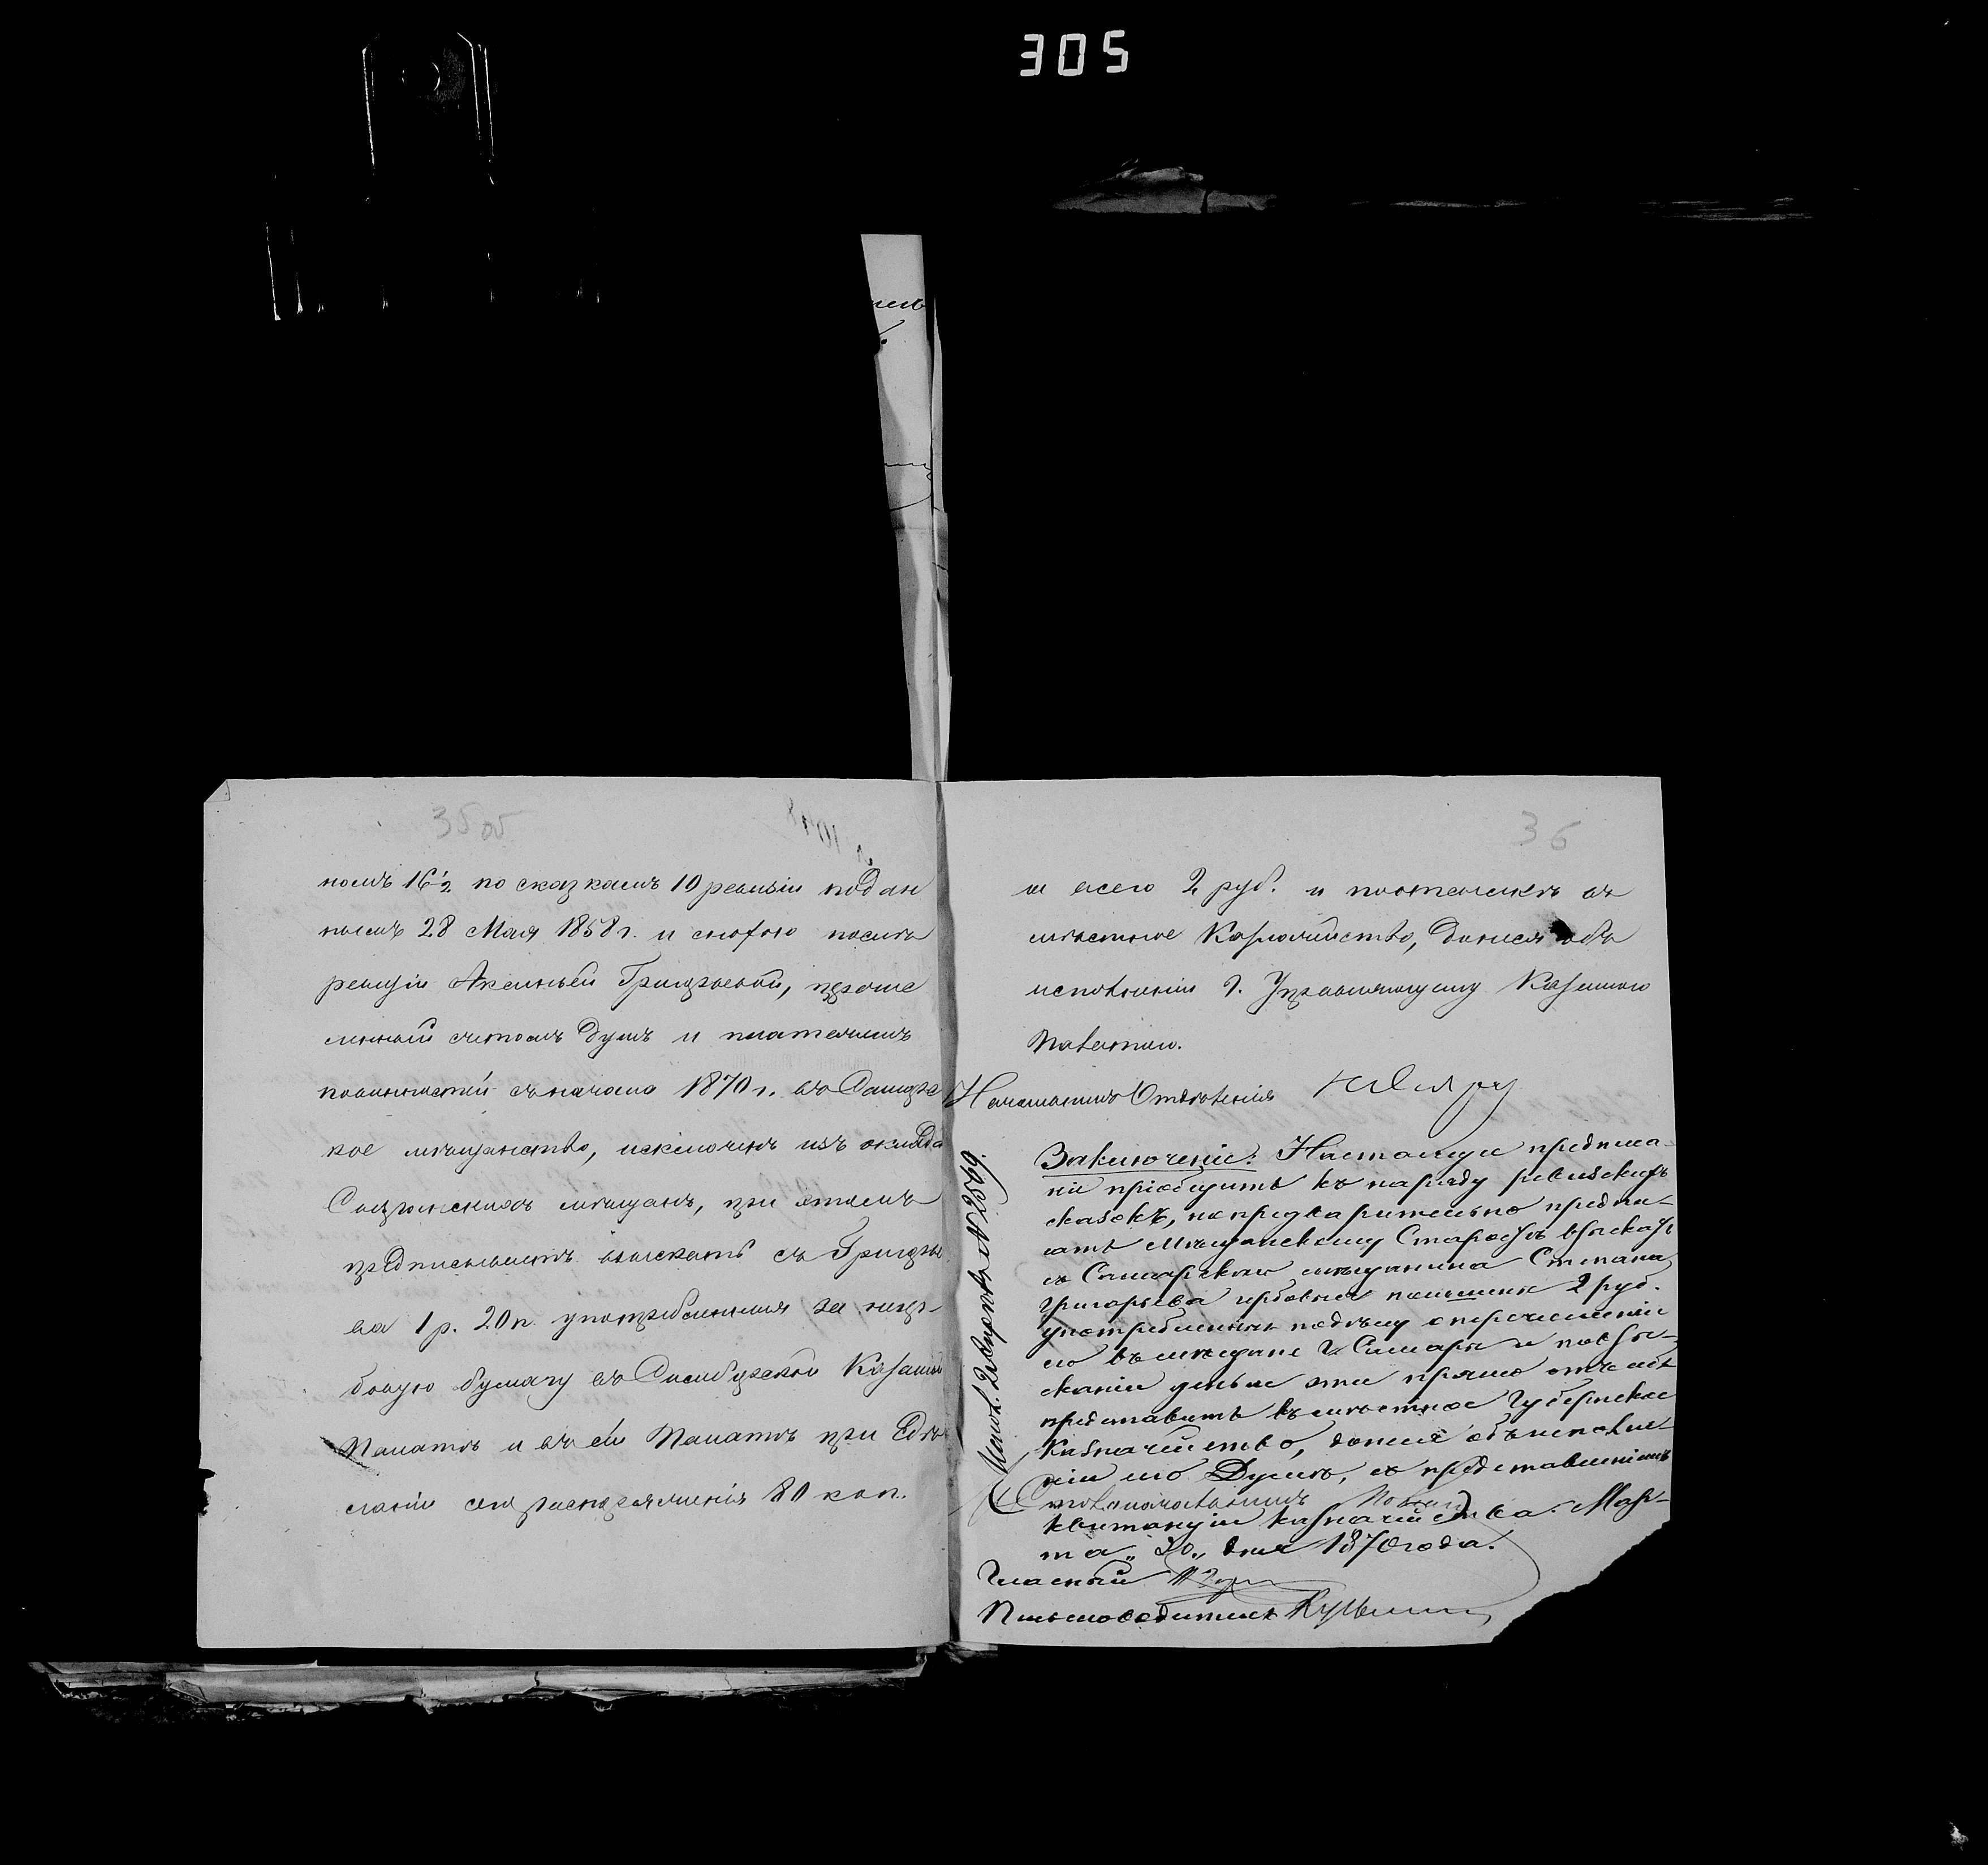 305
35 об
номъ 16½ по сказкамъ 10 ревизіи подан
нымъ 28 Мая 1858 г. и снохою послѣ
ревизіи Аксиньей Григорьевой, перечи
сленный счетомъ душъ и платежемъ
повинностей съ начала 1870 г. въ Самарс
кое мѣщанство, исключенъ изъ оклада
Сызранскихъ мѣщанъ, при этомъ
предписываетъ взыскать съ Григорье
ва 1 р. 20 к. употребленныя за герб-
бовую бумагу въ Симбирской Казенной
Палатѣ и въ сей Палатѣ при сдѣ
ланіи сего распоряженія 80 коп.
36
а всего 2 руб. и поставляетъ въ
мѣстное Казначейство, донеся объ
исполненіи Г. Управляющему Казенною
Палатою.
Начальникъ Отдѣленія
Исполн. 2 Апрѣля № 2569.
Заключеніе: Настоящее предписа-
ніе пріобщить къ наряду ревизскихъ
сказокъ, но предварительно предпи-
сать Мѣщанскому Старостѣ взыскать
съ Самарскаго мѣщанина Степана
Григорьева гербовыя пошлины 2 руб.
употребленныя по дѣлу о перечисленіи
его въ мѣщане г. Самары и по взы-
сканіи деньги эти прямо отъ себя
представить въ мѣстное Губернское
Казначейство, донеся объ исполне-
ніи его Думѣ, съ представленіемъ
Столоначальникъ
квитанціи казначейства. Мар-
та „30„ дня 1870 года.
Гласный
Письмоводитель